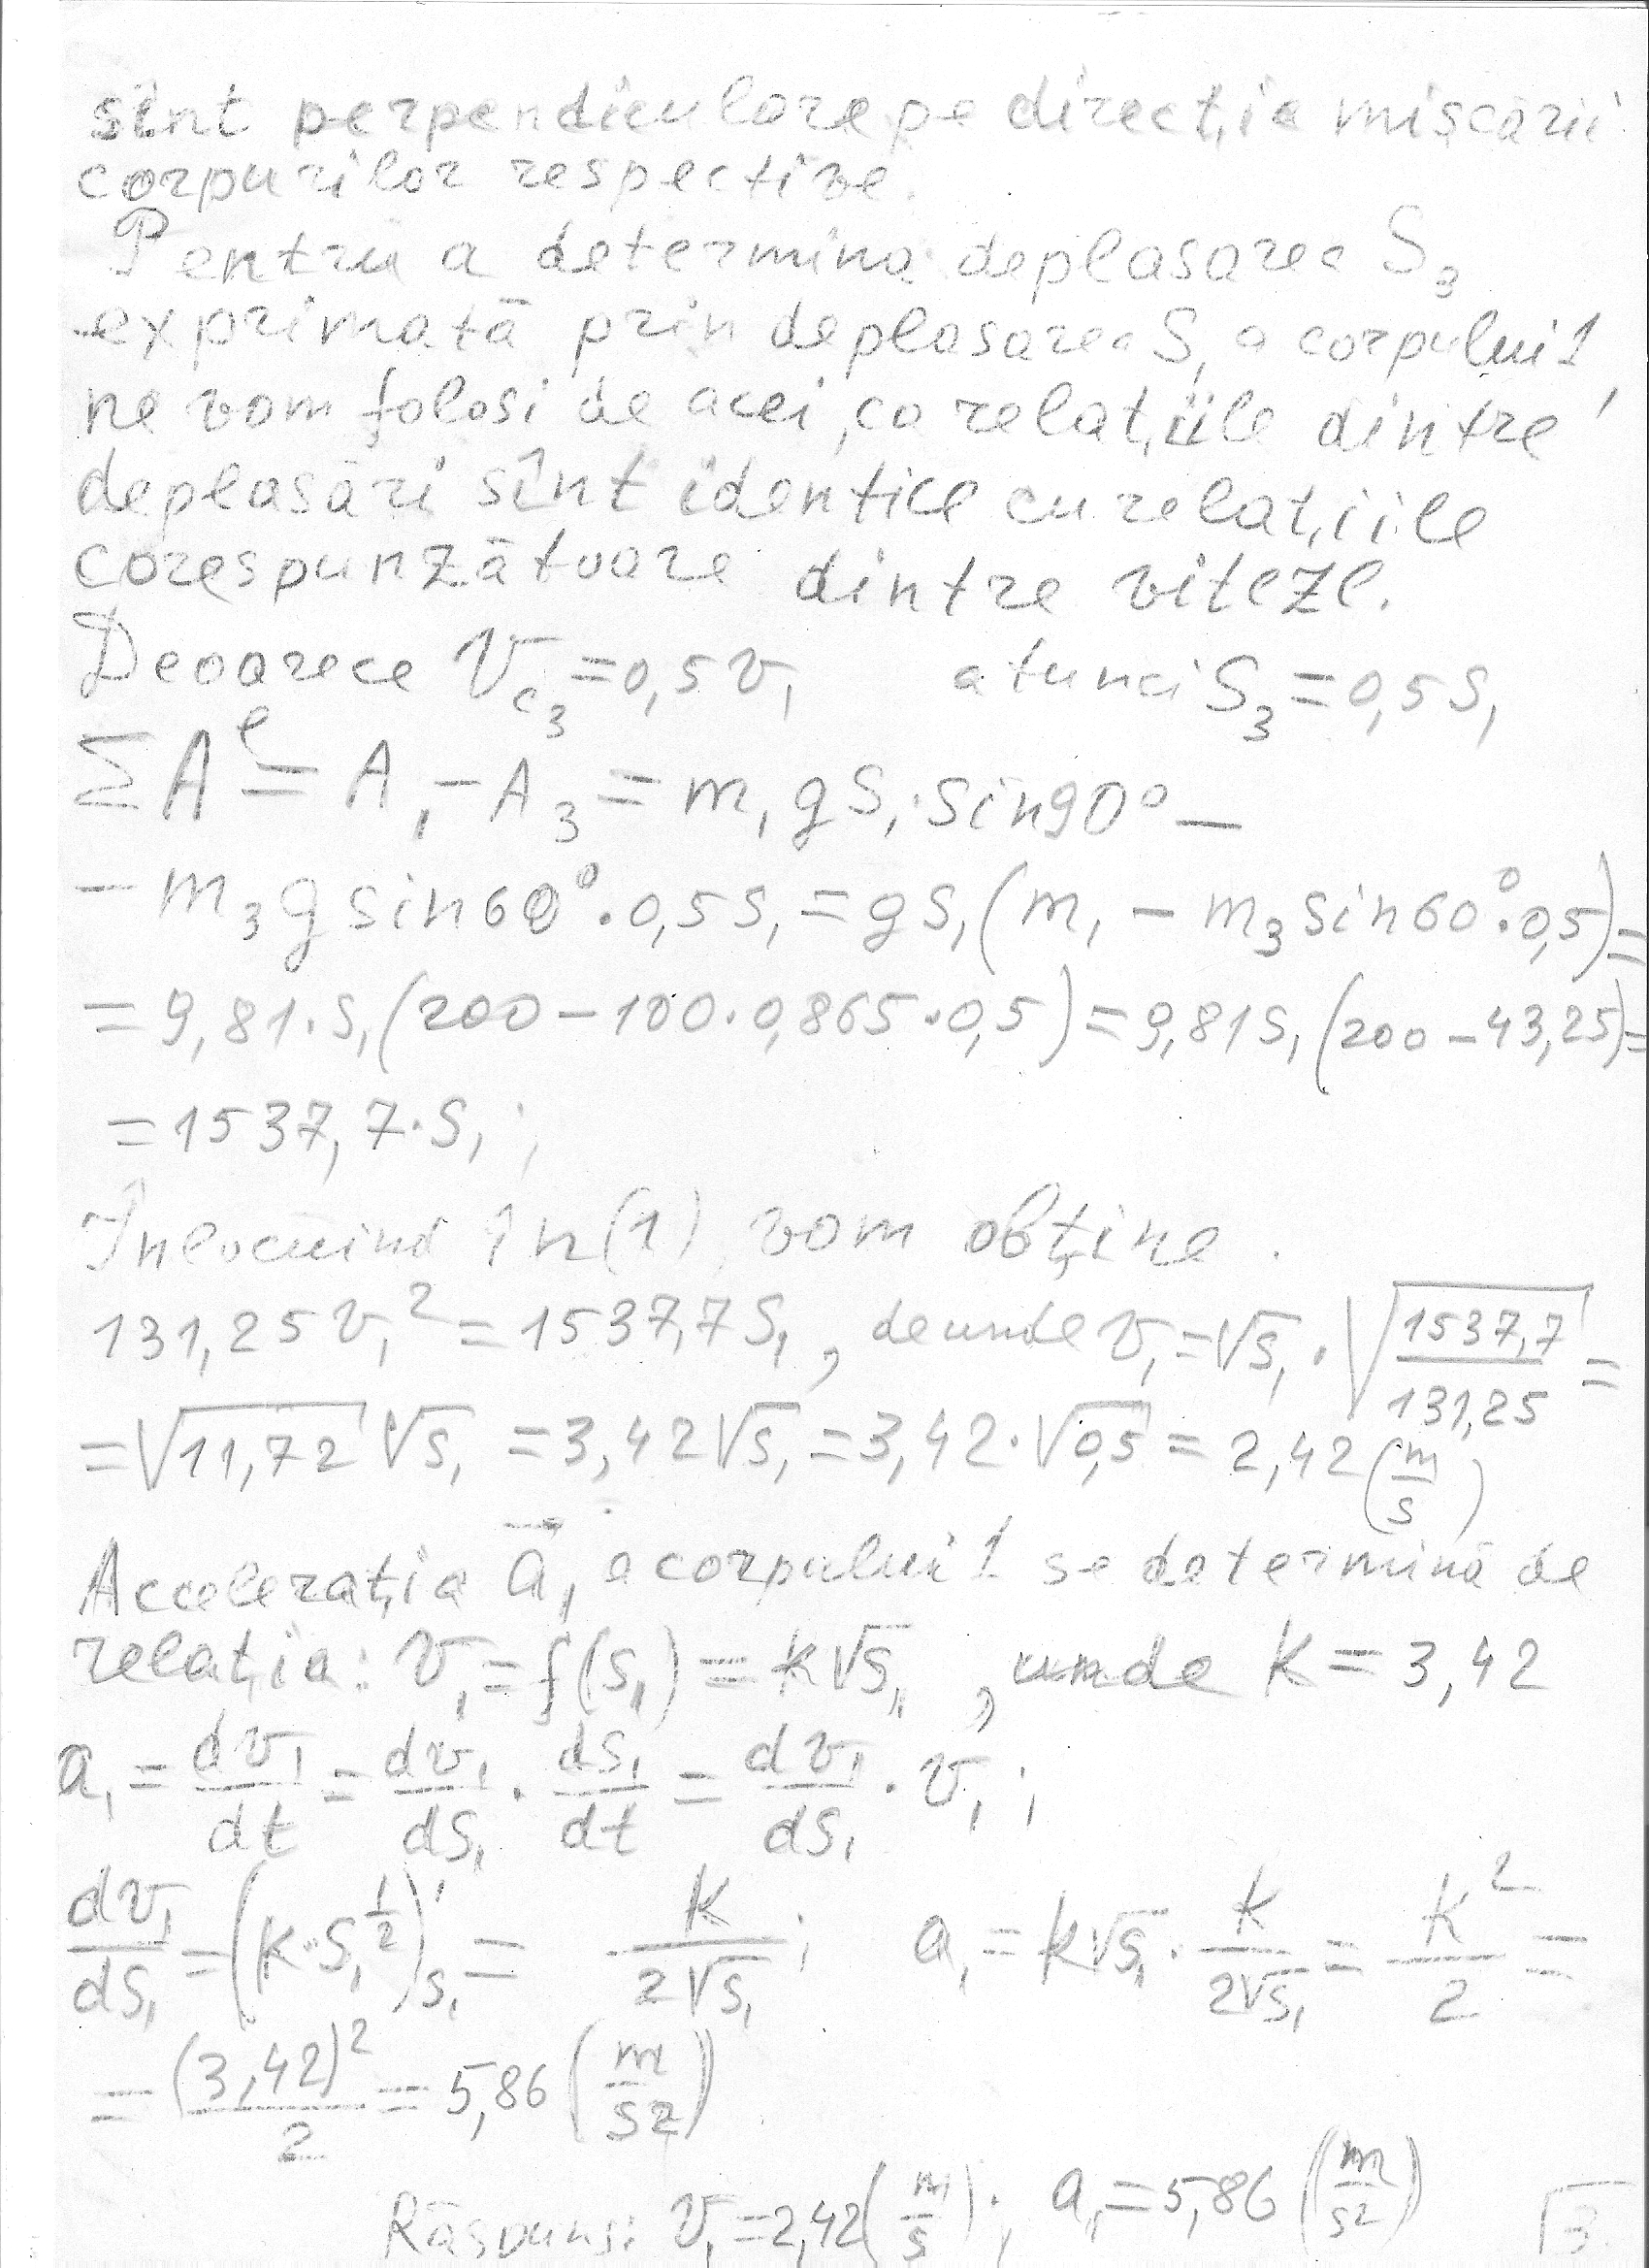 sînt perpendiculare pe direcția mișcării
corpurilor respective.
Pentru a determina deplasarea S₃
exprimată prin deplasarea S₁ a corpului 1,
ne vom folosi de acei, ca relațiile dintre
deplasări sînt identice cu relațiile
corespunzătoare dintre viteze.
Deoarece V_c₃ = 0,5 v₁ atunci S₃ = 0,5 S₁
ΣA^e = A₁ - A₃ = m₁ g S₁ · sin 90° —
— m₃ g sin 60° · 0,5 S₁ = g S₁ (m₁ - m₃ sin 60° · 0,5) =
= 9,81 · S₁ (200 - 100 · 0,865 · 0,5) = 9,81 S₁ (200 - 43,25) =
= 1537,7 · S₁ ;
Înlocuind în (1) vom obține.
131,25 v₁² = 1537,7 S₁ , de unde v₁ = √S₁ · √(1537,7/131,25) =
= √11,72 √S₁ = 3,42 √S₁ = 3,42 · √0,5 = 2,42 (m/s)
Accelerația a⃗₁ a corpului 1 se determină de
relația: v₁ = f(S₁) = k√S₁ , unde k = 3,42
a₁ = dv₁/dt = dv₁/dS₁ · dS₁/dt = dv₁/dS₁ · v₁ ;
dv₁/dS₁ = (k · S₁^(1/2))'_S₁ = k/(2√S₁) ; a₁ = k√S₁ · k/(2√S₁) = k²/2 =
= (3,42)²/2 = 5,86 (m/s²)
Răspuns: v₁ = 2,42 (m/s) ; a₁ = 5,86 (m/s²) 3